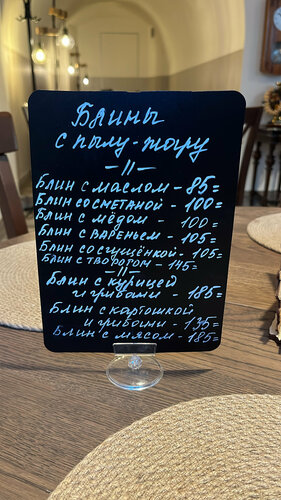 Блины
с пылу-жару
— 11 —
Блин с маслом - 85=
Блин со сметаной - 100=
Блин с мёдом - 100=
Блин с вареньем - 105=
Блин со сгущёнкой - 105=
Блин с творогом - 145=
— 11 —
Блин с курицей
и грибами - 185=
Блин с картошкой
и грибами - 135=
Блин с мясом - 185=